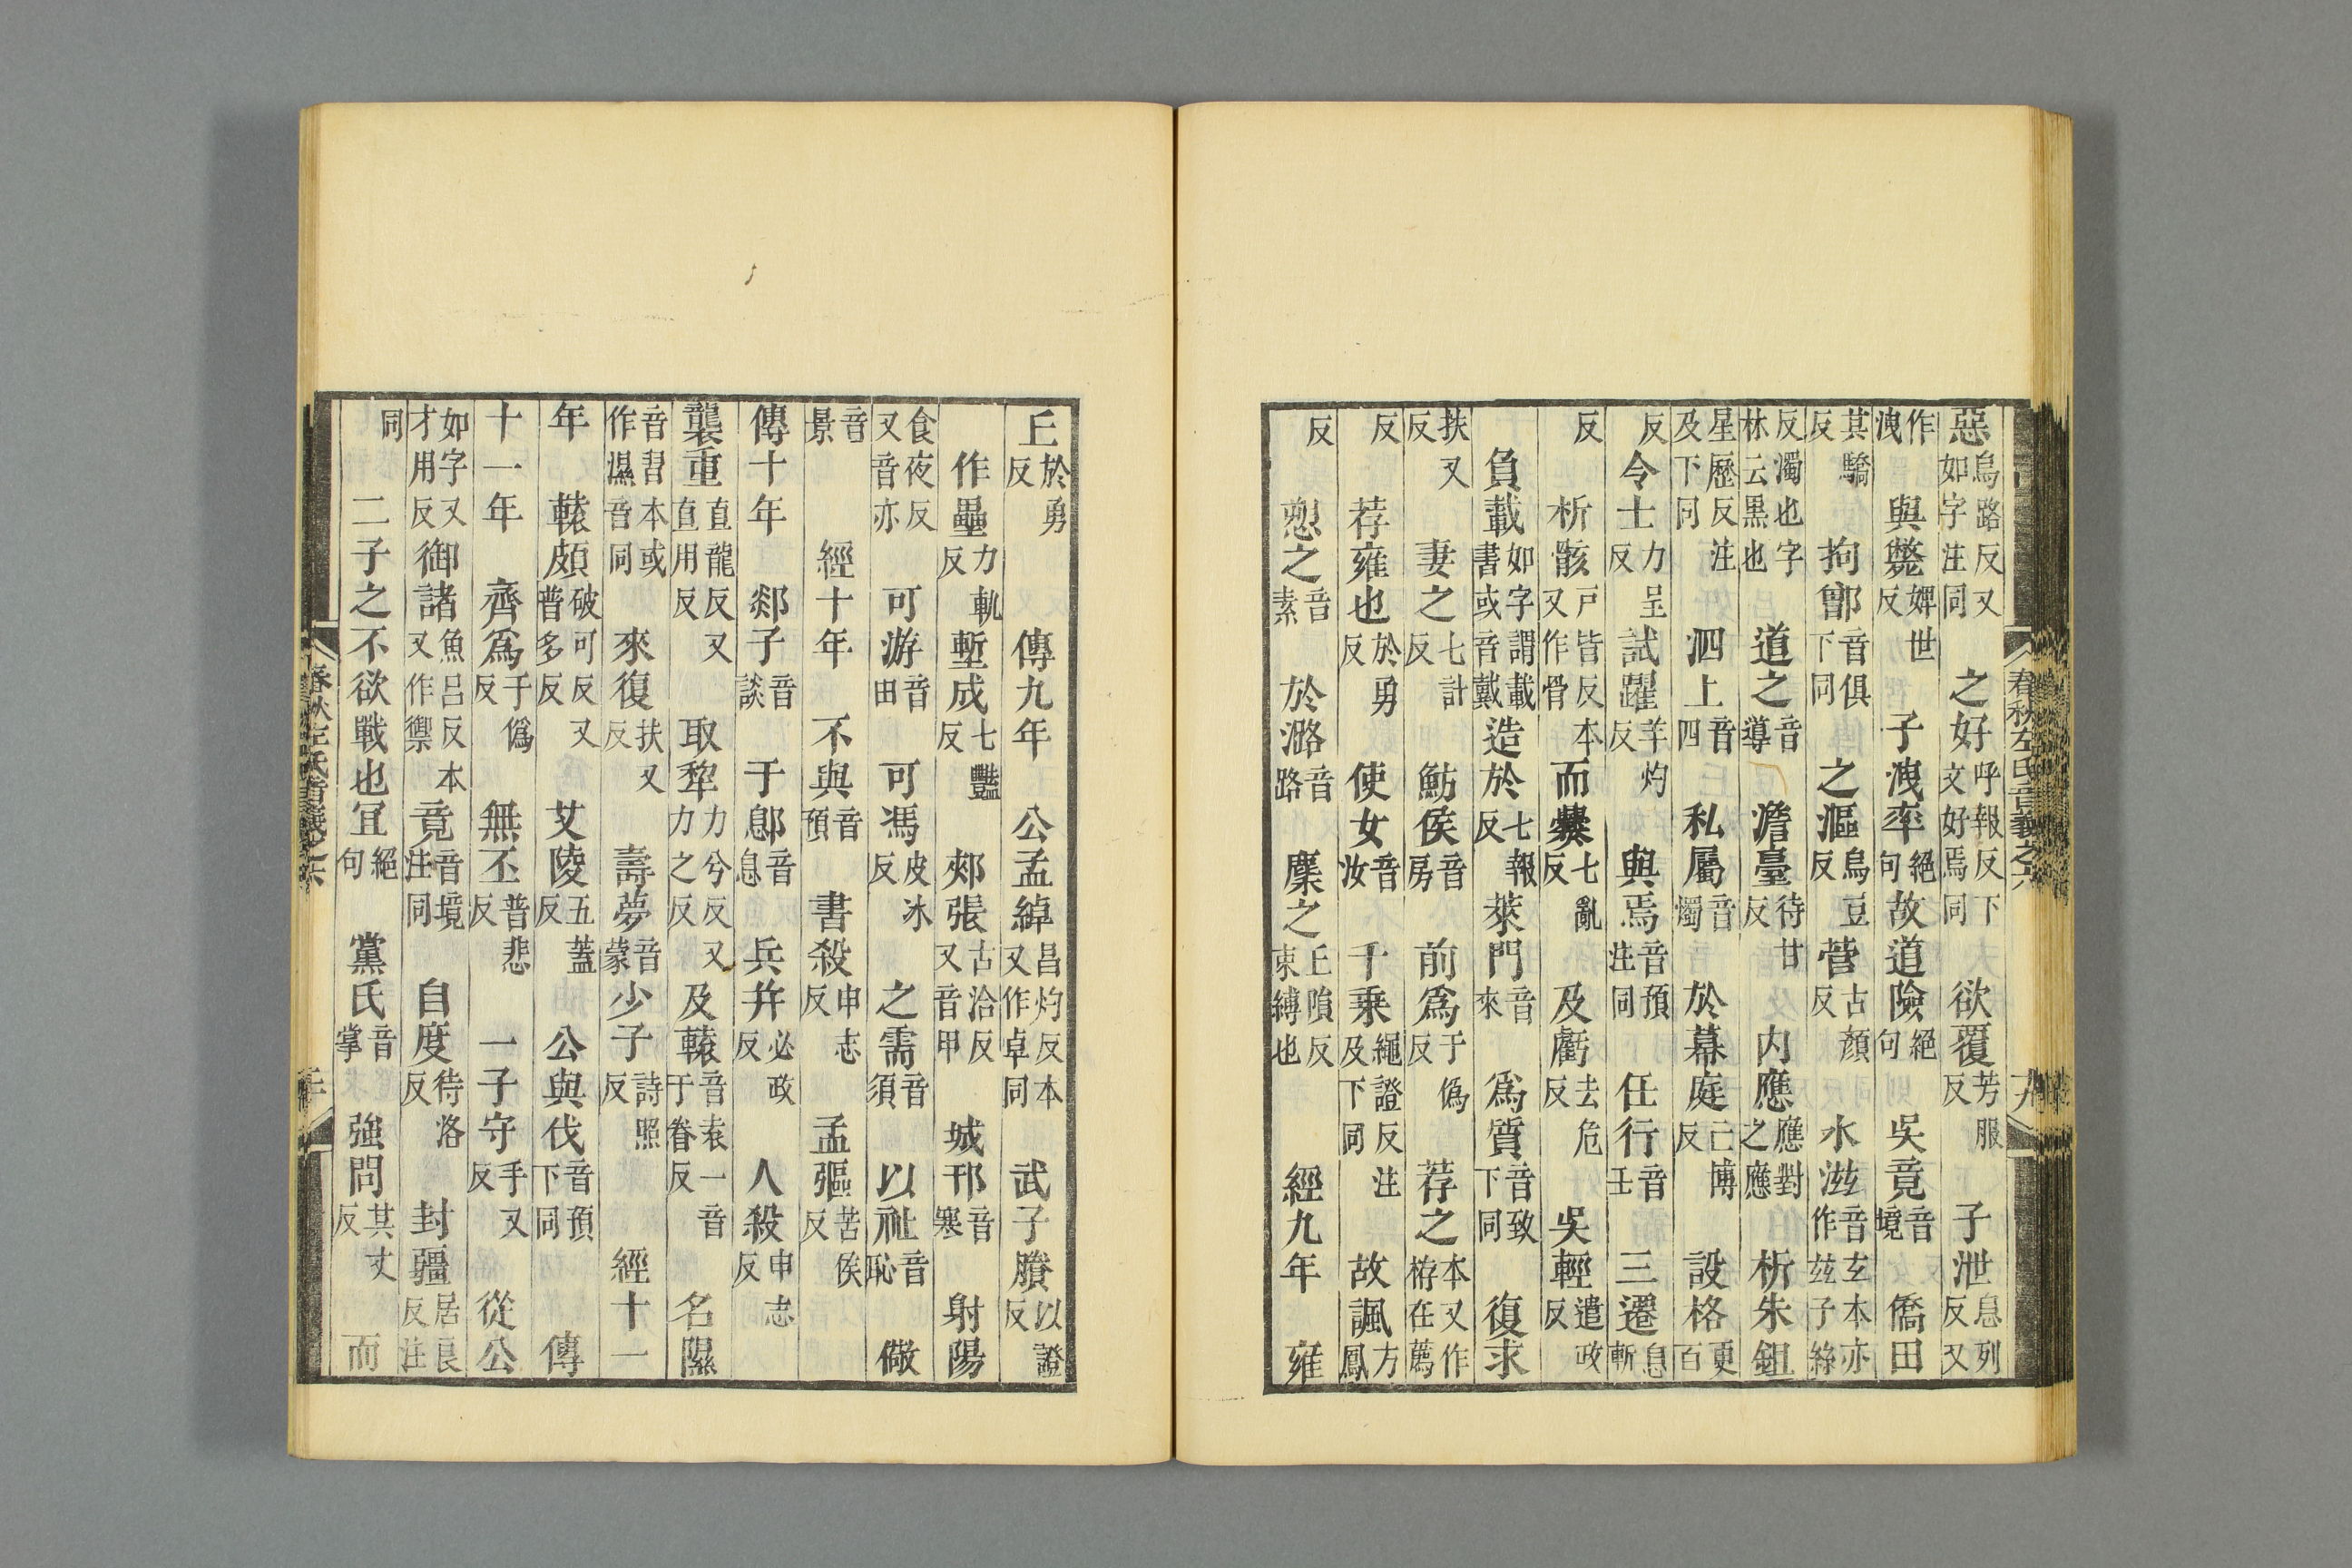 惡烏路反又如字注同 之好呼報反下文好焉同 欲覆芳服反 子泄息列反又
作洩 與斃婢世反 子洩率絕句 故道險絕句 吳竟音境 僑田
其驕反 拘鄫音俱下同 之漚烏豆反 菅古顏反 水滋音玄本亦作玆子絲
反濁也字林云黑也 道之音導 澹臺待甘反 內應應對之應 析朱鉏
星歷反注及下同 泗上音四 私屬音燭 於幕庭亡博反 設格更百
反 令士力呈反 試躍羊灼反 與焉音預注同 任行音壬 三遷息斬
反 析骸戶皆反本又作骨 而爨七亂反 及虧去危反 吳輕遣政反
負載如字謂載書或音戴 造於七報反 萊門音來 爲質音致下同 復求
扶又反 妻之七計反 魴侯音房 前爲于僞反 荐之本又作栫在薦
反 荐雍也於勇反 使女音汝 千乘繩證反注及下同 故諷方鳳
反 愬之音素 於潞音路 麇之丘隕反束縛也 經九年 雍
春秋左氏音義之六 十九
丘於勇反 傳九年 公孟綽昌灼反本又作卓同 武子賸以證反
作壘力軌反 塹成七豔反 郟張古洽反又音甲 城邗音寒 射陽
食夜反又音亦 可游音田 可馮皮冰反 之需音須 以祉音恥 儆
音景 經十年 不與音預 書殺申志反 孟彄苦侯反
傳十年 郯子音談 于鄎音息 兵并必政反 人殺申志反
襲重直龍反又直用反 取犂力兮反又力之反 及轅音袁一音于眷反 名隰
音習本或作濕音同 來復扶又反 壽夢音蒙 少子詩照反 經十一
年 轅頗破可反又普多反 艾陵五蓋反 公與伐音預下同 傳
十一年 齊爲于僞反 無丕普悲反 一子守手又反 從公
如字又才用反 御諸魚呂反本又作禦 竟音境注同 自度待洛反 封疆居良反注
同 二子之不欲戰也宜絕句 黨氏音掌 強問其丈反 而
春秋左氏音義之六